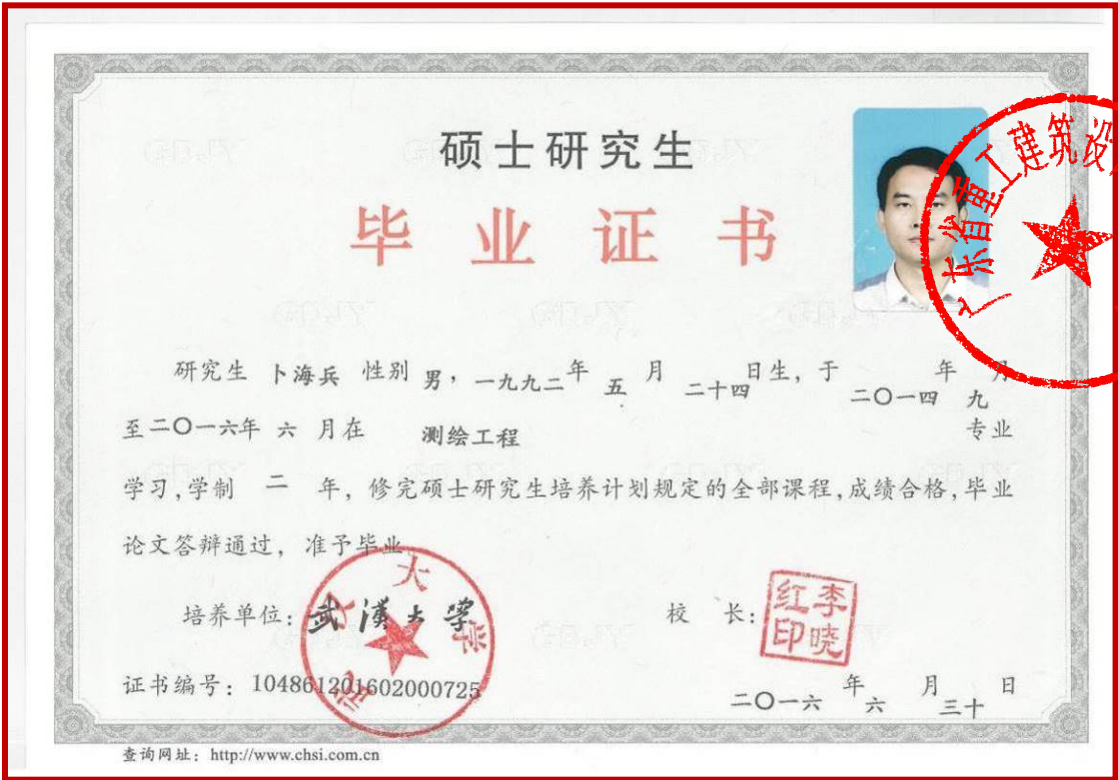 硕士研究生
毕业证书
广东省重工建筑设
研究生 卜海兵 性别 男，一九九二年 五 月 二十四日生，于 二〇一四年 九月
至二〇一六年 六 月在 测绘工程 专业
学习，学制 二 年，修完硕士研究生培养计划规定的全部课程，成绩合格，毕业
论文答辩通过，准予毕业
培养单位：武漢大学 校 长：李晓红印
武汉大学
证书编号：104861201602000725
二〇一六年 六 月 三十日
查询网址：http://www.chsi.com.cn